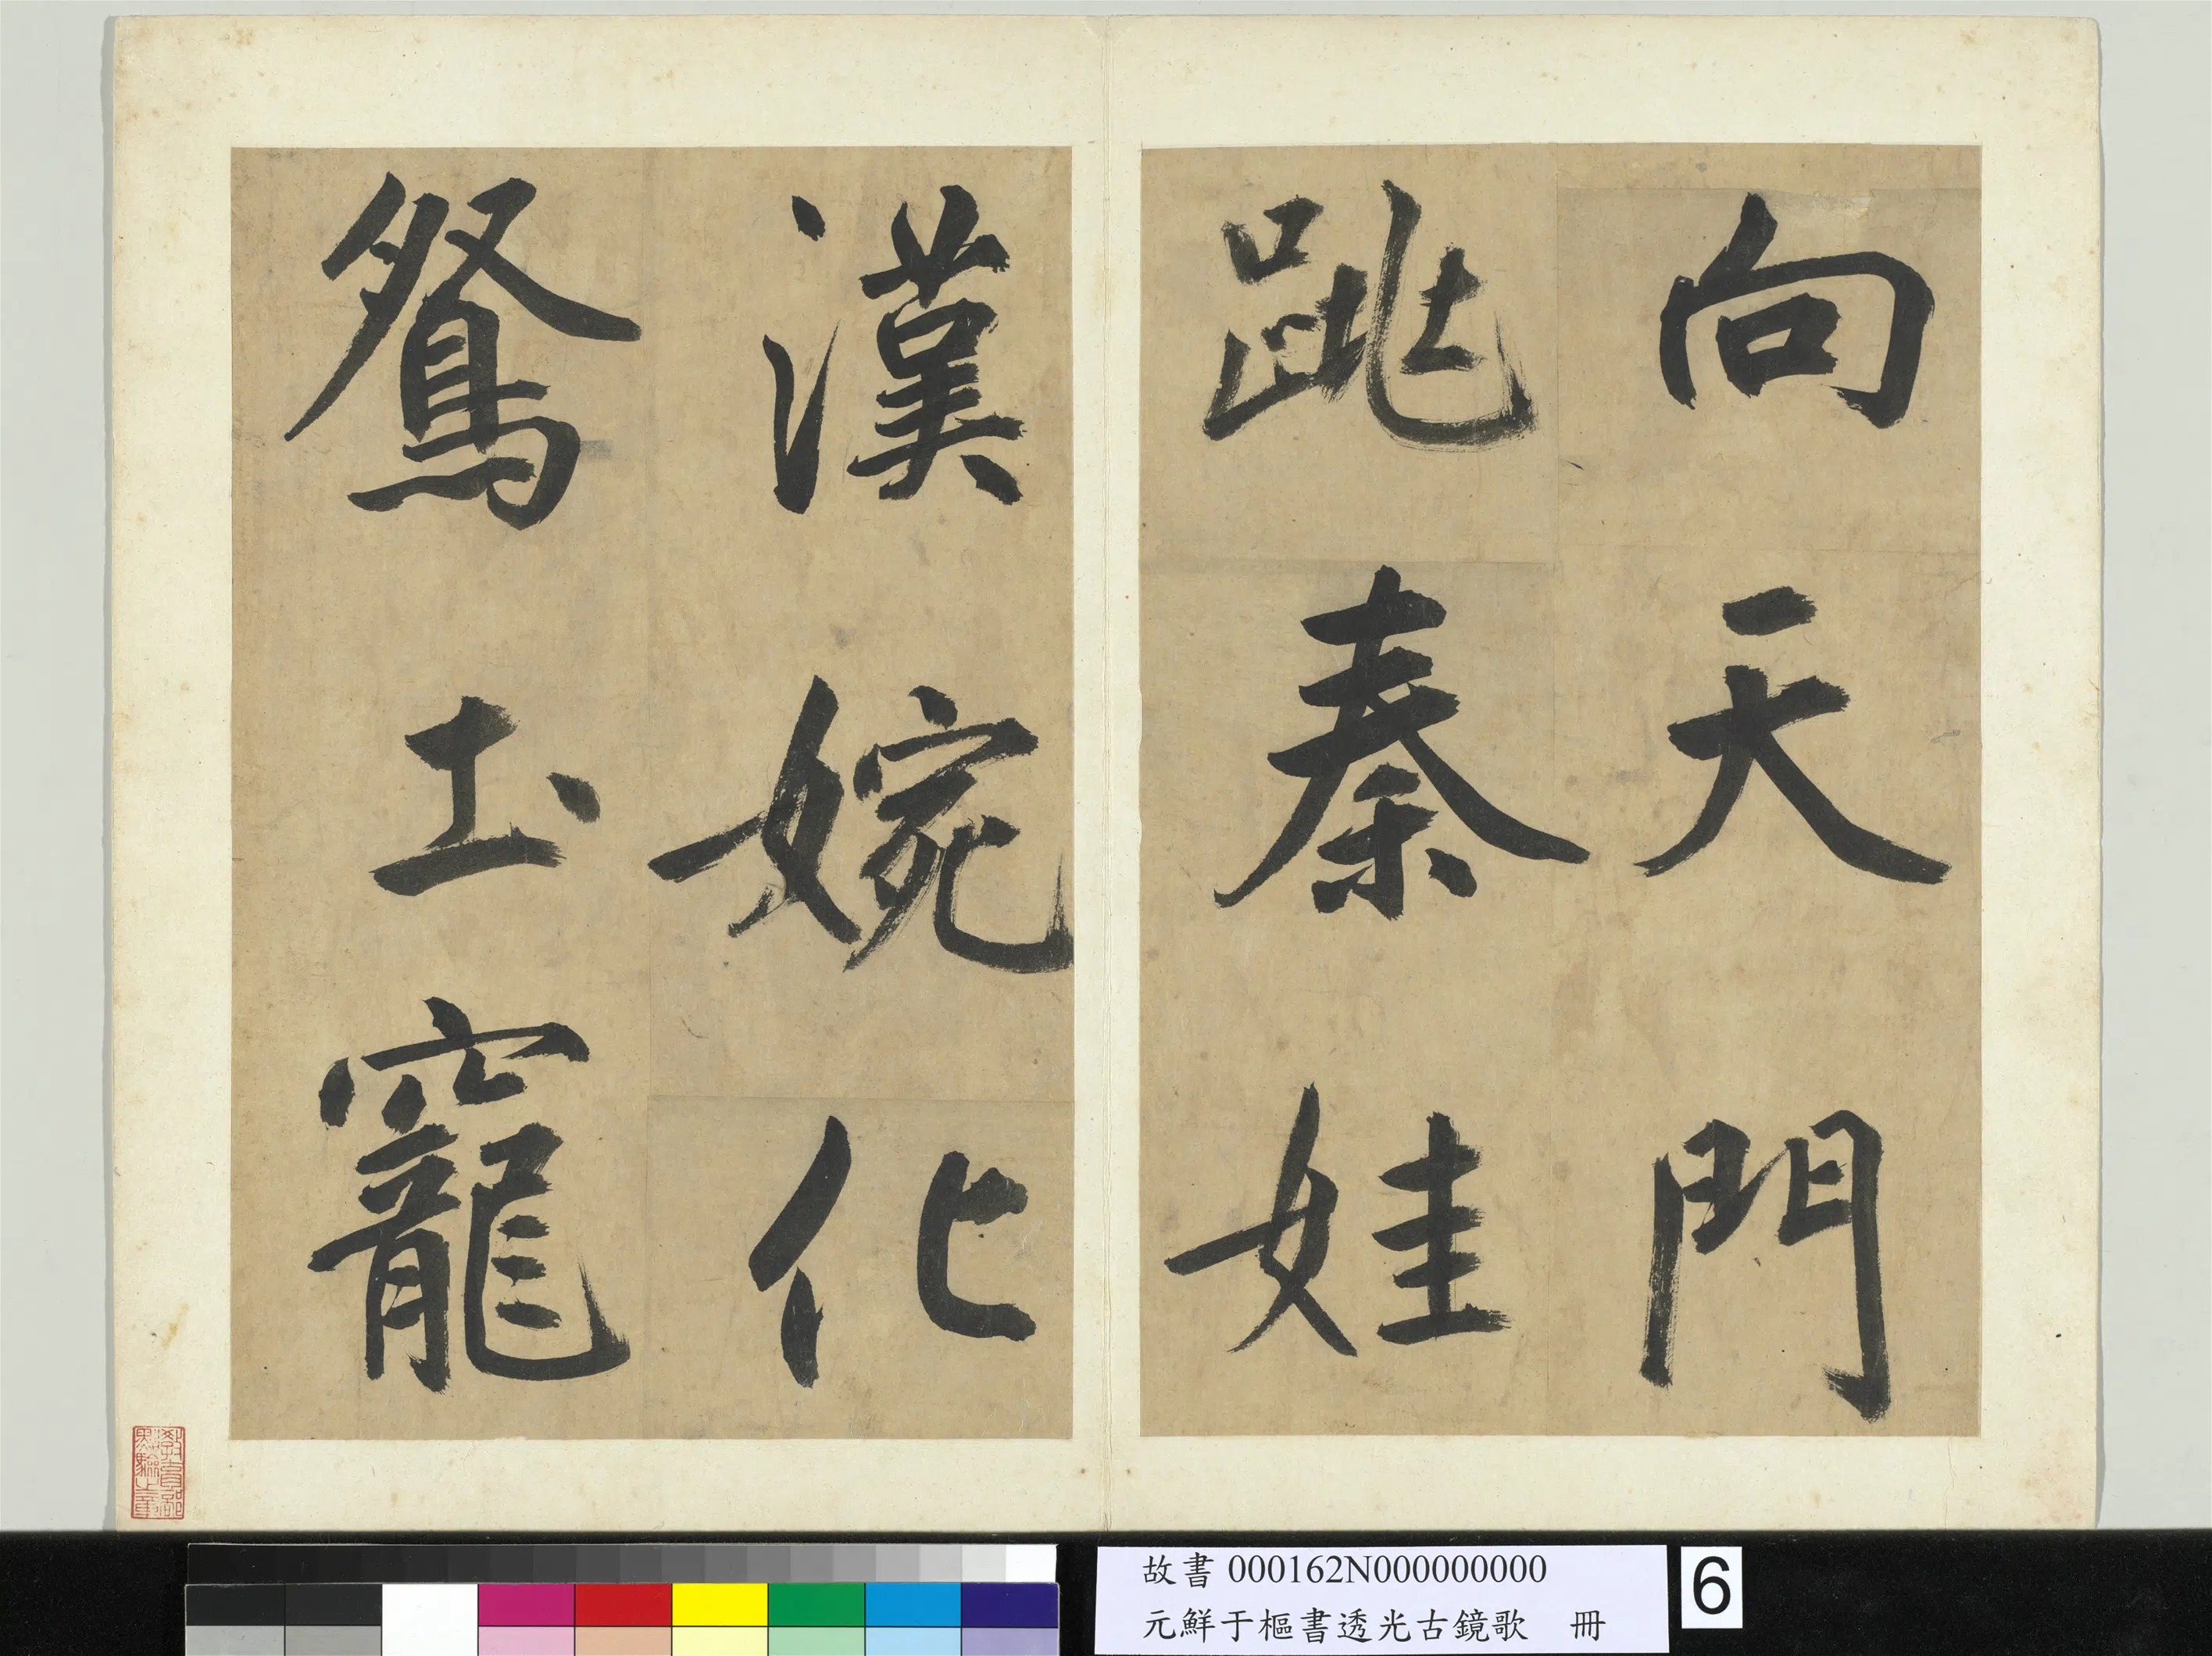 向天門
跳秦娃
漢婉化
鴛圡竉
教育部
點驗之章
故書 000162N000000000
元鮮于樞書透光古鏡歌 冊
6